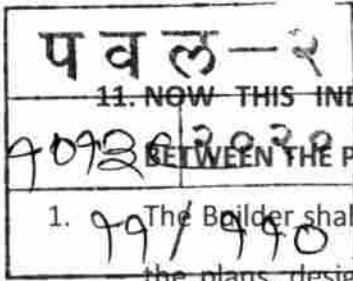 प व ल - २
11. NOW THIS IND
२०२०
BETWEEN THE P
1. The Builder shal
११/११०
the plans, desig